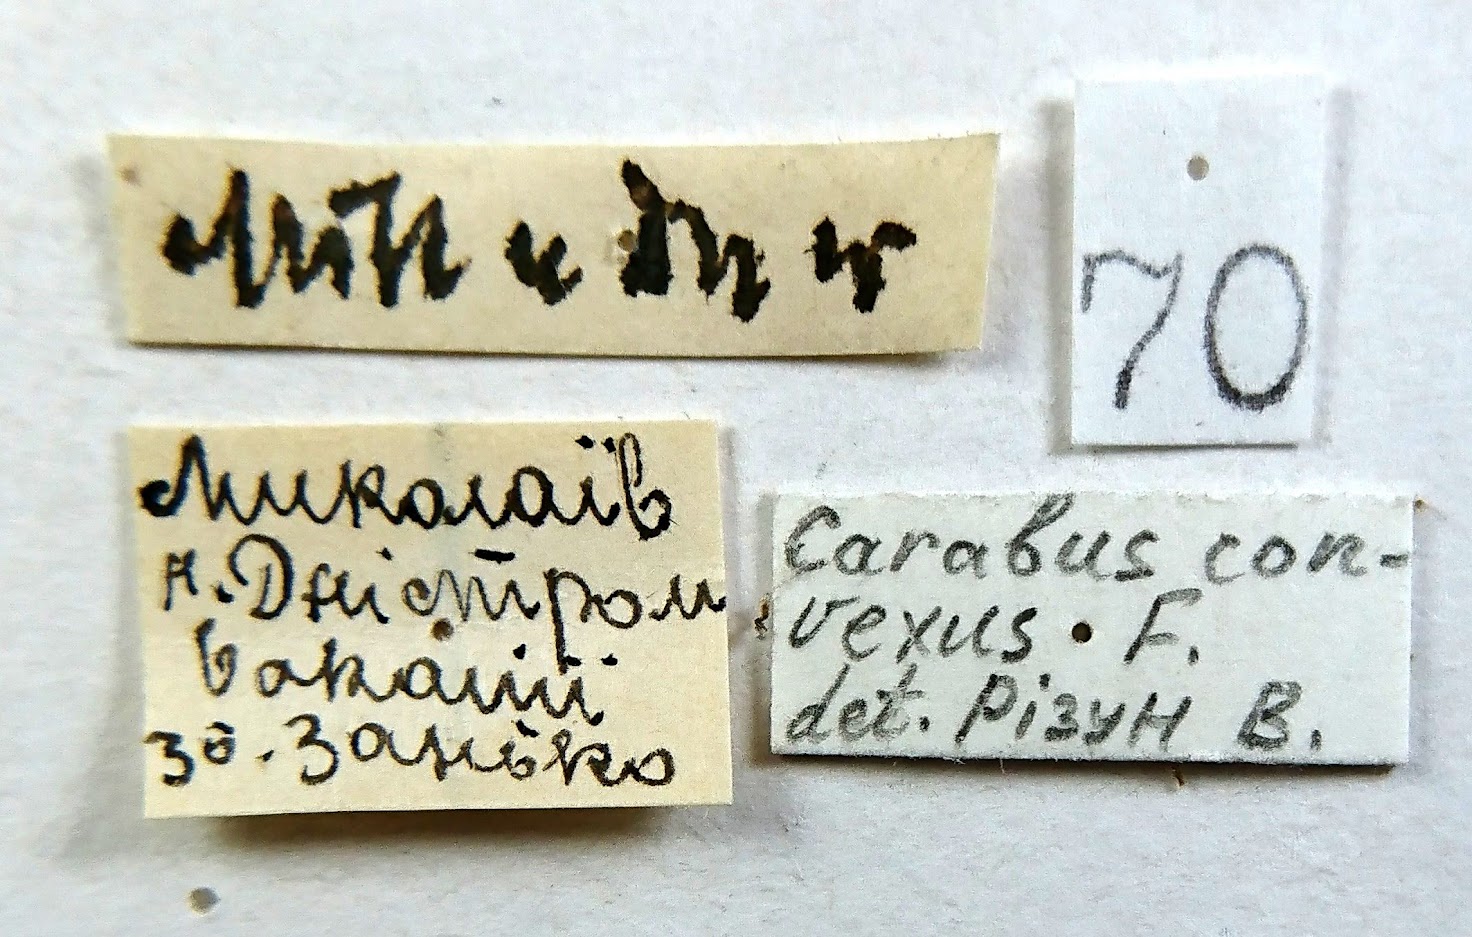 70
Миколаїв
н. Дністром
Вакації
зб. Занько
Carabus con-
vexus F.
det. Різун В.